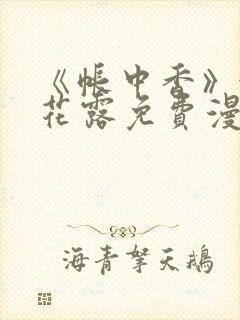 《帐中香》
花露免费漫
海青拏天鹅